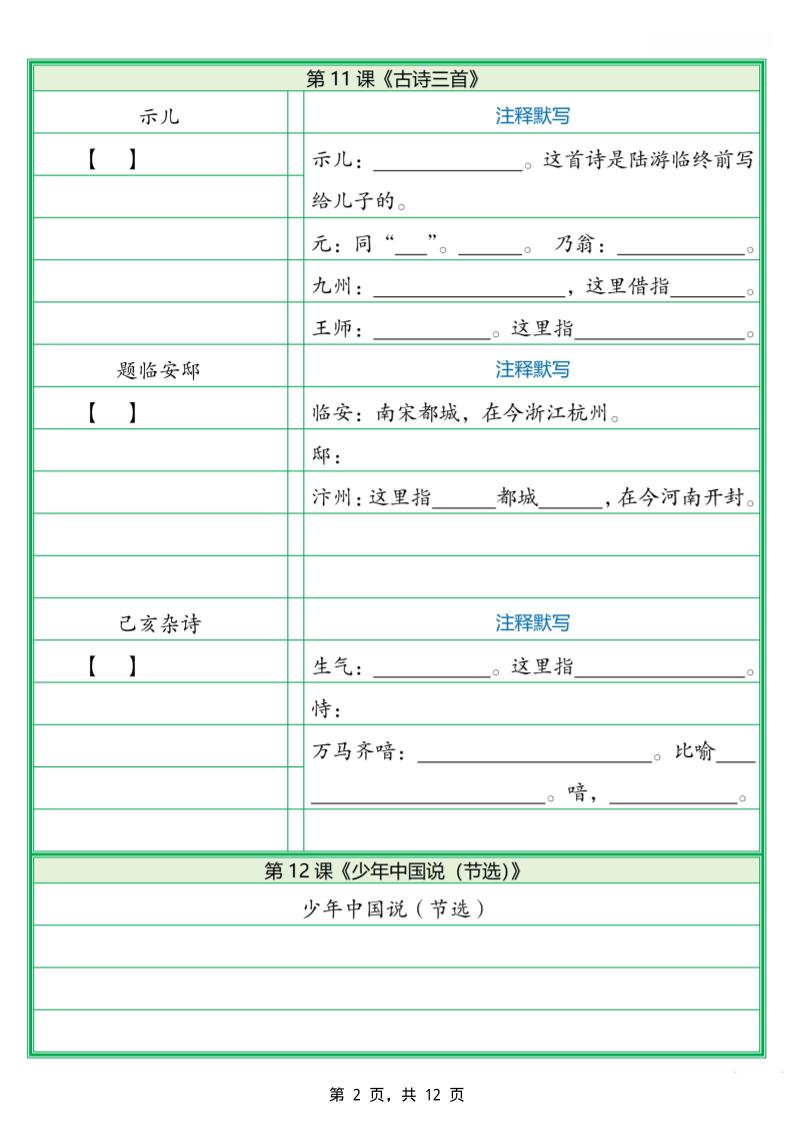 第 11 课《古诗三首》
示儿
注释默写
【 】
示儿：______________。这首诗是陆游临终前写
给儿子的。
元：同“___”。______。 乃翁：____________。
九州：__________________，这里借指_______。
王师：___________。这里指________________。
题临安邸
注释默写
【 】
临安：南宋都城，在今浙江杭州。
邸：
汴州：这里指______都城______，在今河南开封。
己亥杂诗
注释默写
【 】
生气：___________。这里指________________。
恃：
万马齐喑：______________________。比喻____
______________________。喑，____________。
第 12 课《少年中国说（节选）》
少年中国说（节选）
第 2 页，共 12 页